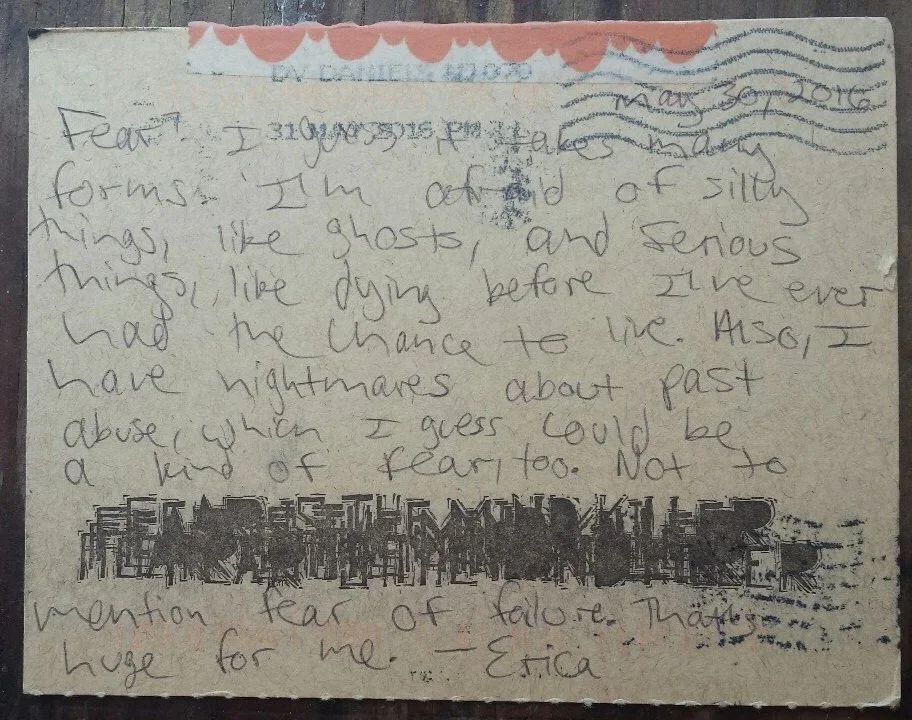 DV DANIELS NJ 070
May 30, 2016
31 MAY 2016 PM
Fear? I guess it takes many
forms. I'm afraid of silly
things, like ghosts, and serious
things, like dying before I've ever
had the chance to live. Also, I
have nightmares about past
abuse, which I guess could be
a kind of fear, too. Not to
FEAR IS THE MIND KILLER
mention fear of failure. That's
huge for me. — Erica